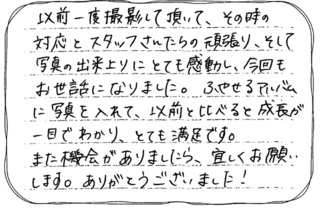 以前一度撮影して頂いて、その時の
対応とスタッフさんたちの頑張り、そして
写真の出来上りにとても感動し、今回も
お世話になりました。ふやせるアルバム
に写真を入れて、以前と比べると成長が
一目でわかり、とても満足です。
また機会がありましたら、宜しくお願い
します。ありがとうございました!